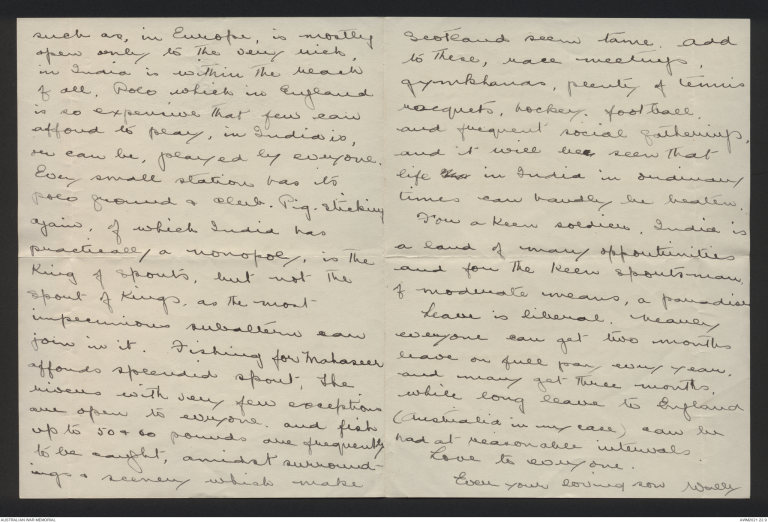 such as, in Europe, is mostly
open only to the very rich,
in India is within the reach
of all. Polo which in England
is so expensive that few can
afford to play, in India is,
or can be, played by everyone.
Every small station has its
polo ground & club. Pig-sticking
again, of which India has
practically a monopoly, is the
King of Sports, but not the
Sport of Kings, as the most
impecunious subaltern can
join in it. Fishing for Mahaseer
affords splendid sport, the
rivers with very few exceptions
are open to everyone. and fish
up to 50 & 60 pounds are frequently
to be caught, amidst surround-
ings & scenery which make
Scotland seem tame. Add
to these, race meetings,
gymkhanas, plenty of tennis
racquets, hockey. football,
and frequent social gatherings,
and it will be seen that
life in India in ordinary
times can hardly be beaten.
For a keen soldier, India is
a land of many opportunities
and for the keen sportsman,
of moderate means, a paradise
Leave is liberal. Nearly
everyone can get two months
leave on full pay every year,
and many get three months,
while long leave to England
(Australia in my case) can be
had at reasonable intervals.
Love to everyone.
Ever your loving son Wally
AUSTRALIAN WAR MEMORIAL